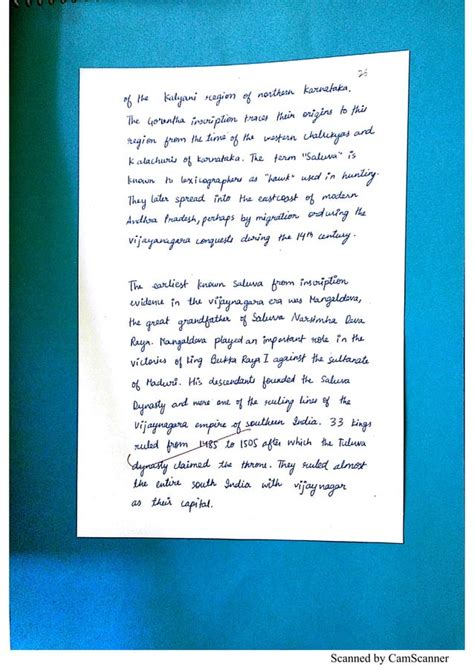 26
of the Kalyani region of northern Karnataka.
The Gorantha inscription traces their origins to this
region from the time of the western Chalukyas and
Kalachuris of Karnataka. The term "Saluva" is
known to lexicographers as "hawk" used in hunting.
They later spread into the eastcoast of modern
Andhra Pradesh, perhaps by migration or during the
Vijayanagara conquests during the 14th century.
The earliest known Saluva from inscription
evidence in the vijaynagara era was Mangaldeva,
the great grandfather of Saluva Narsimha Deva
Raya. Mangaldeva played an important role in the
victories of king Bukka Raya I against the sultanate
of Maduri. His descendants founded the Saluva
Dynasty and were one of the ruling lines of the
Vijaynagara empire of southern India. 33 kings
ruled from 1485 to 1505 after which the Tuluva
dynasty claimed the throne. They ruled almost
the entire south India with vijaynagar
as their capital.
Scanned by CamScanner